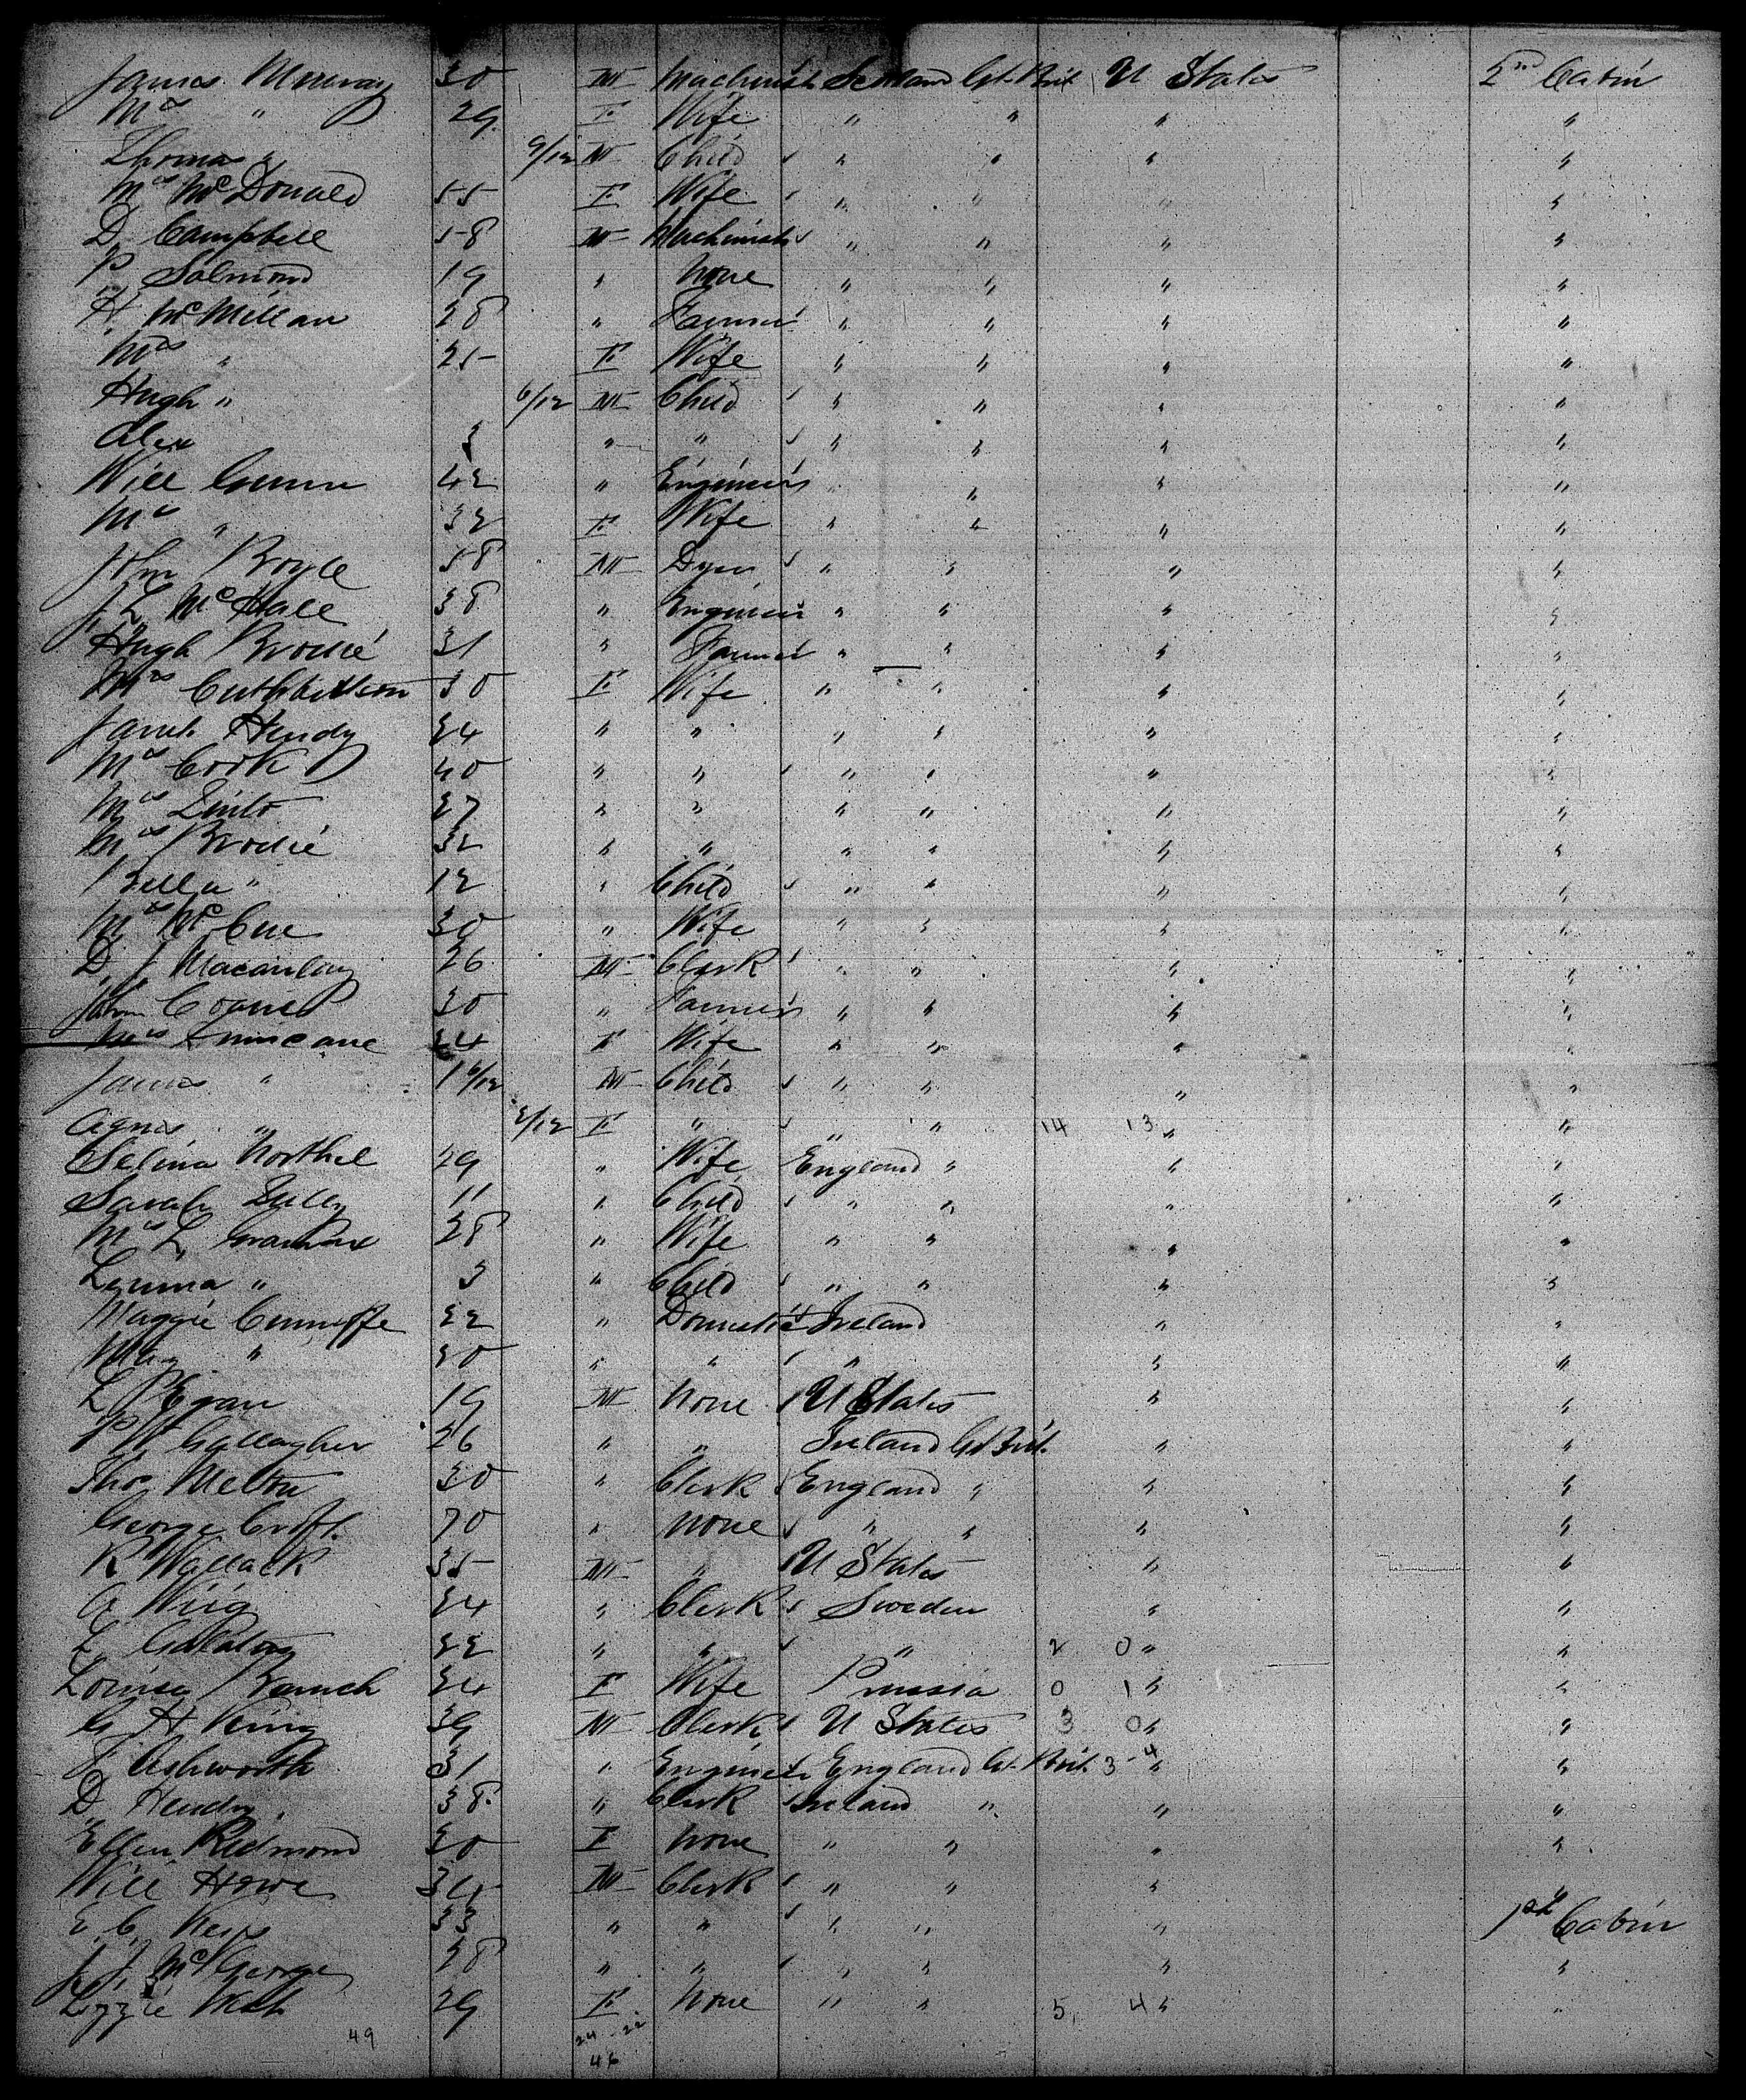 James Murray 30 M Machinist Scotland Gt. Brit U States 2nd Cabin
Mrs " 29 F Wife " " " "
Thomas " 9/12 M Child " " " "
Mrs McDonald 55 F Wife " " " "
D. Campbell 58 M Machinist " " " "
P. Salmond 19 " None " " " "
H. McMillan 28 " Farmer " " " "
Mrs " 25 F Wife " " " "
Hugh " 6/12 M Child " " " "
Alex 3 " " " " " "
Will Gunn 42 " Engineer " " " "
Mrs " 32 F Wife " " " "
John Boyle 58 M Dyer " " " "
J. L. McHale 38 " Engineer " " " "
Hugh Brodie 31 " Farmer " " " "
Mrs Cuthbertson 30 F Wife " " " "
Hendy 34 " " " " " "
Mrs Cook 40 " " " " " "
Mrs 27 " " " " " "
Mrs Brodie 32 " " " " " "
Bella " 12 " Child " " " "
Mrs McCue 30 " Wife " " " "
D. J. Macaulay 26 M Clerk " " " "
John 30 " Farmer " " " "
Mrs 24 F Wife " " " "
James " 1 6/12 M Child " " " "
Agnes " 2/12 F " " " 14 13 " "
Selina 29 " Wife England " " "
Sarah 11 " Child " " " "
Mrs L. 28 " Wife " " " "
" 3 " Child " " " "
Maggie Cunniffe 22 " Domestic Ireland " "
May " 20 " " " " "
L. P. Egan 19 M None U States " "
P. W. Gallagher 26 " " Ireland Gt. Brit. " "
Thos Melton 30 " Clerk England " " "
George Croft 70 " None " " " "
R Wallack 35 M " U States " "
A. 24 " Clerk Sweden " "
L. 22 " " " 2 0 " "
Louisa 24 F Wife Prussia 0 1 " "
G. H. King 39 M Clerk U States 3 0 " "
F. Ashworth 31 " Engineer England Gt. Brit. 3-4 " "
D. Hendry 38 " Clerk Ireland " " "
Ellen Redmond 20 F None " " " "
Will Howe 34 M Clerk " " " "
E. C. 33 " " " " " 1st Cabin
J. J. McGeorge 28 " " " " " "
Lizzie 29 F None " " 5 4 " "
49 24-22
46